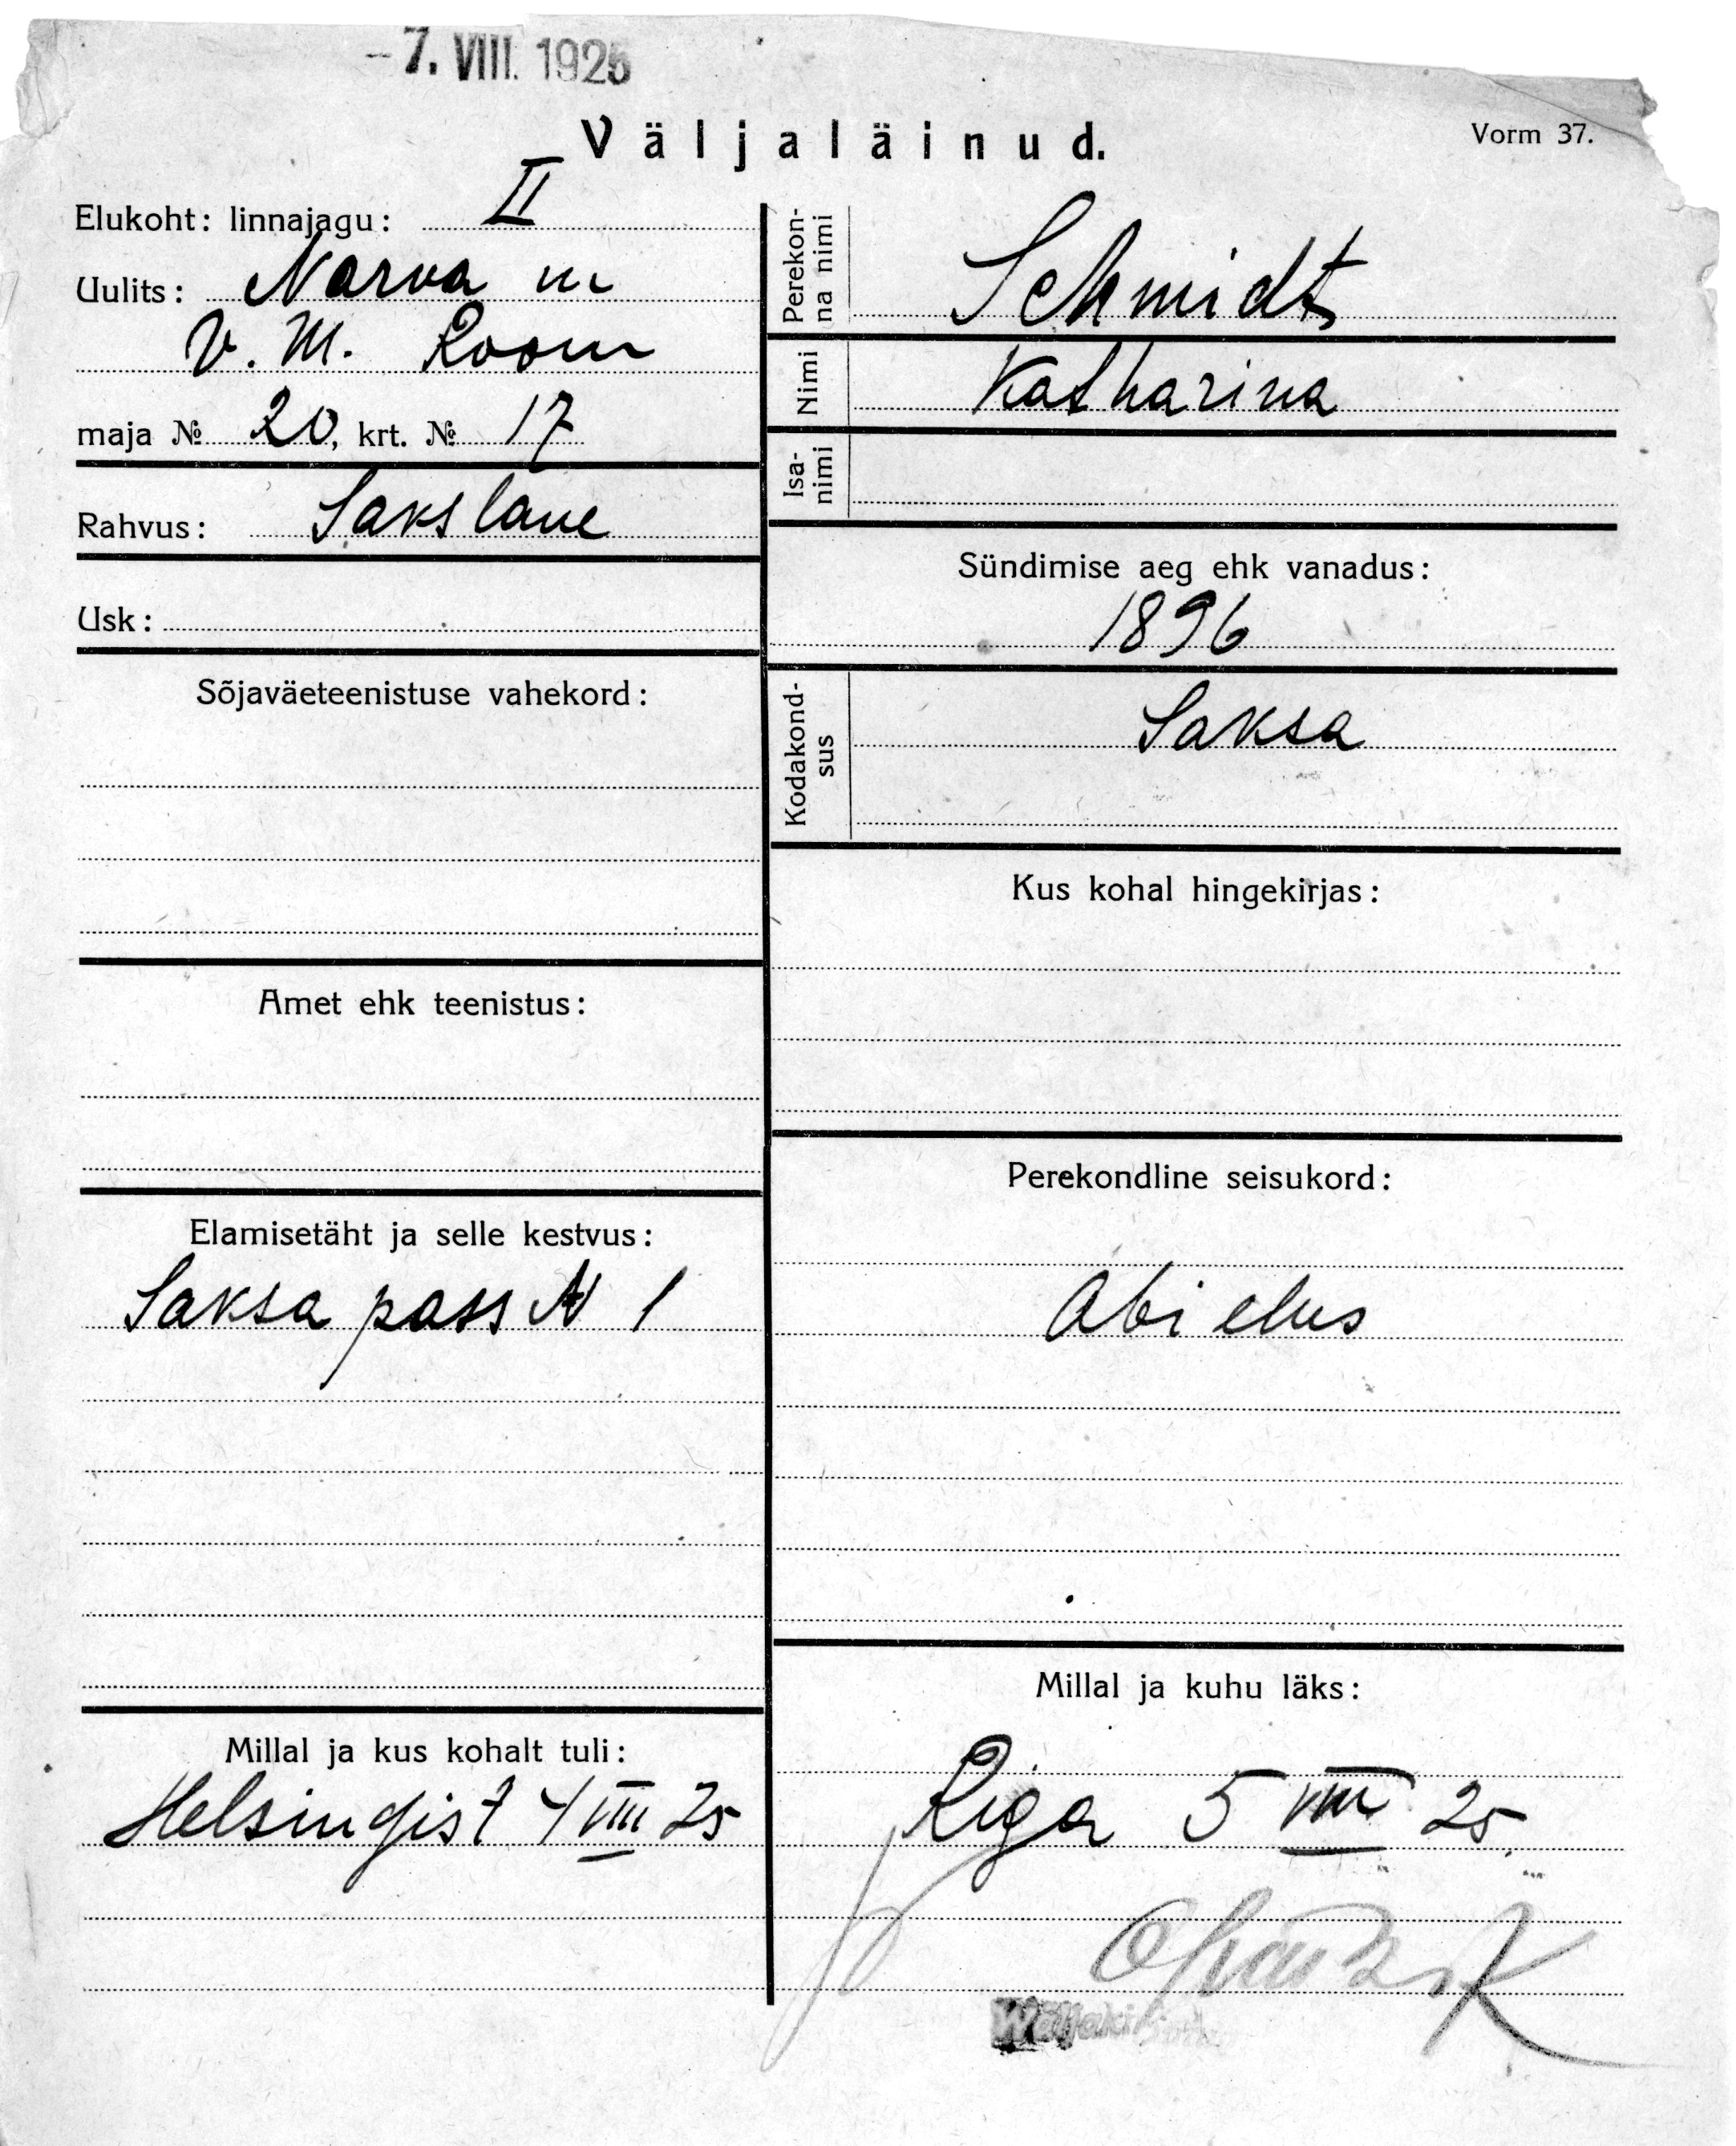 - 7. VIII. 1925
Väljaläinud.
Vorm 37.
Elukoht: linnajagu: II
Uulits: Narva m
V. M. Room
maja № 20, krt. № 17
Rahvus: Sakslane
Usk:
Sõjaväeteenistuse vahekord:
Amet ehk teenistus:
Elamisetäht ja selle kestvus:
Saksa pass N 1
Millal ja kus kohalt tuli:
Helsingist 4 VIII 25
Perekon-
na nimi
Schmidt
Nimi Katharina
Isa-
nimi
Sündimise aeg ehk vanadus:
1896
Kodakond-
sus
Saksa
Kus kohal hingekirjas:
Perekondline seisukord:
Abielus
Millal ja kuhu läks:
Riga 5 VIII 25